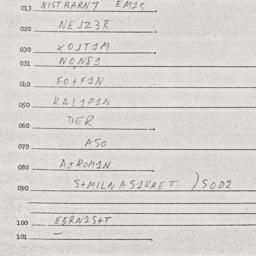 013 NISTRARN7 EMIS
020 NEJZ3R
030 XOJT1M
031 NONS1
040 FO+F1N
050 KAL1P1N
060 DER
070 ASO
080 A+ROM1N
090 S+MILNASIKRET )SOD2
100 ESRN1S+T
101 –